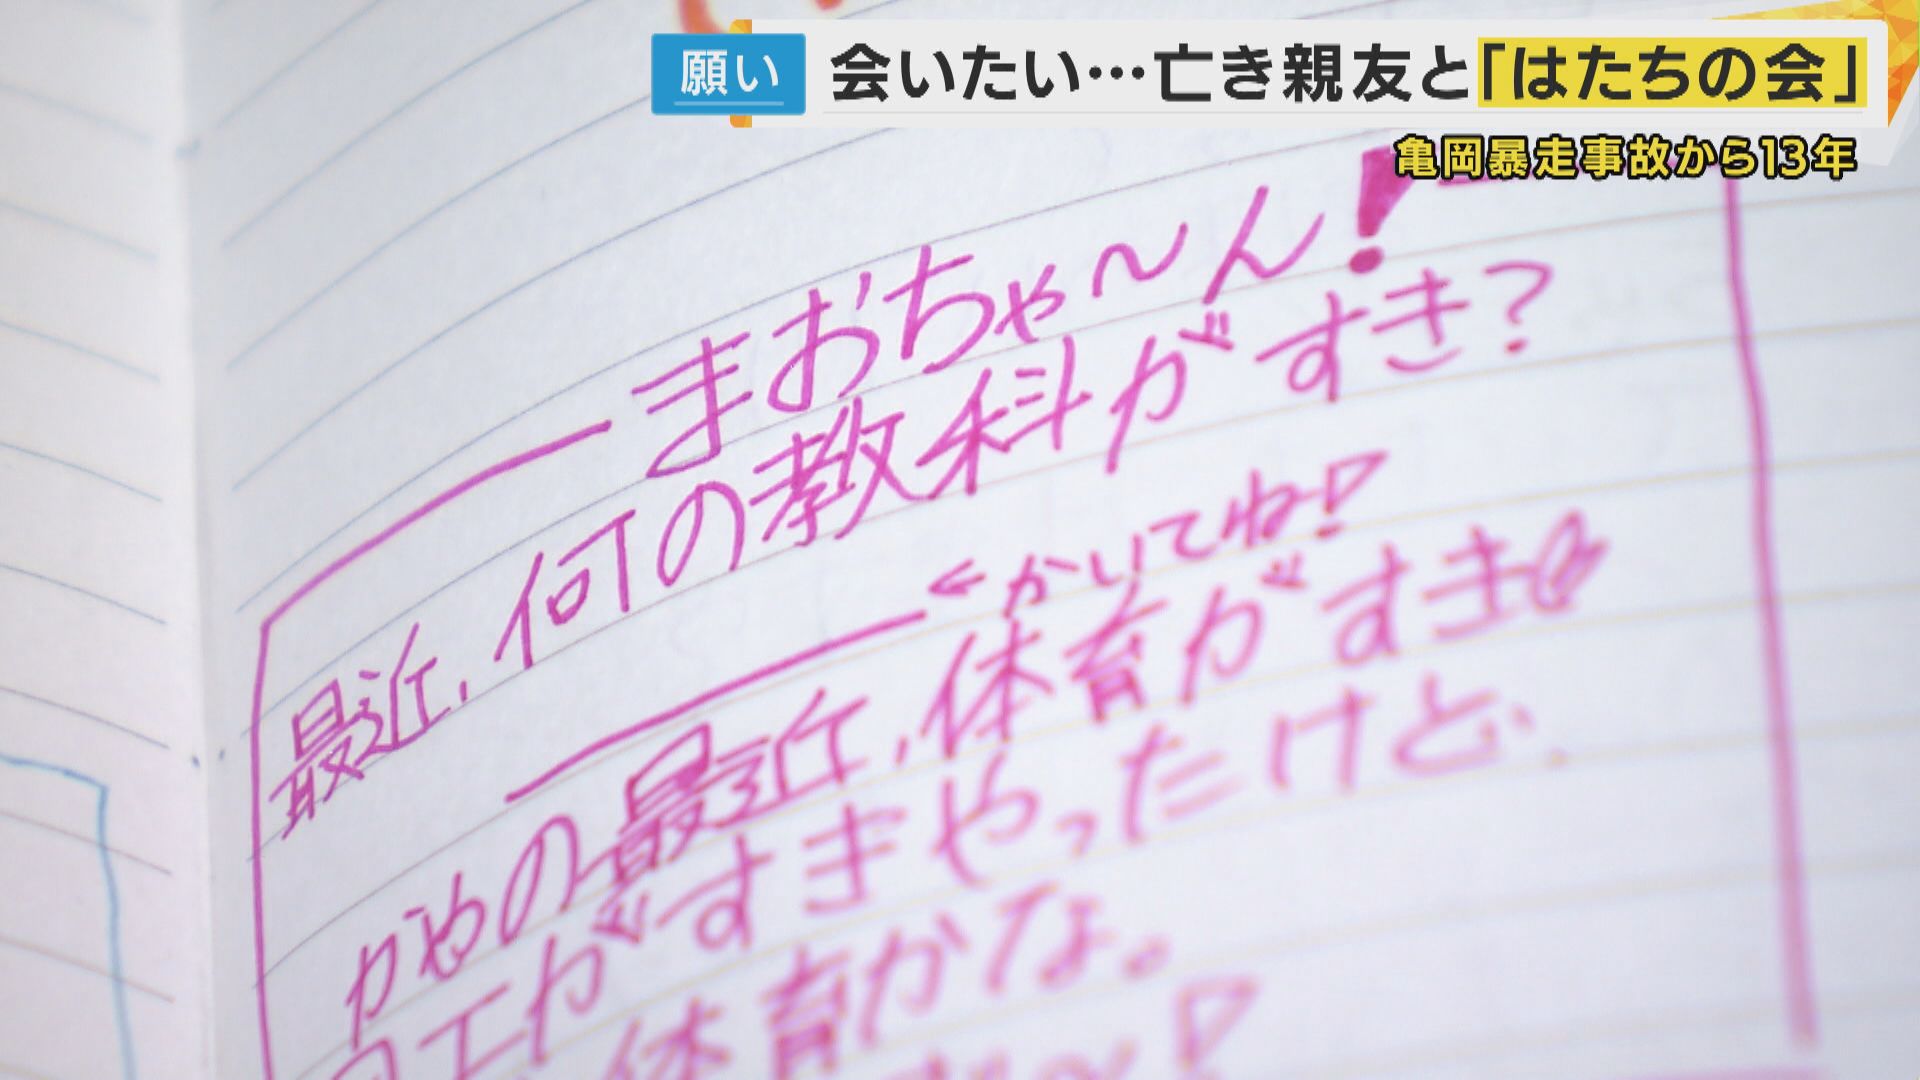 願い
会いたい…亡き親友と「はたちの会」
亀岡暴走事故から13年
まおちゃ〜ん!
最近、何の教科がすき?
←かいてね!
かやの最近、体育がすき
がすきやったけど、
体育かな。